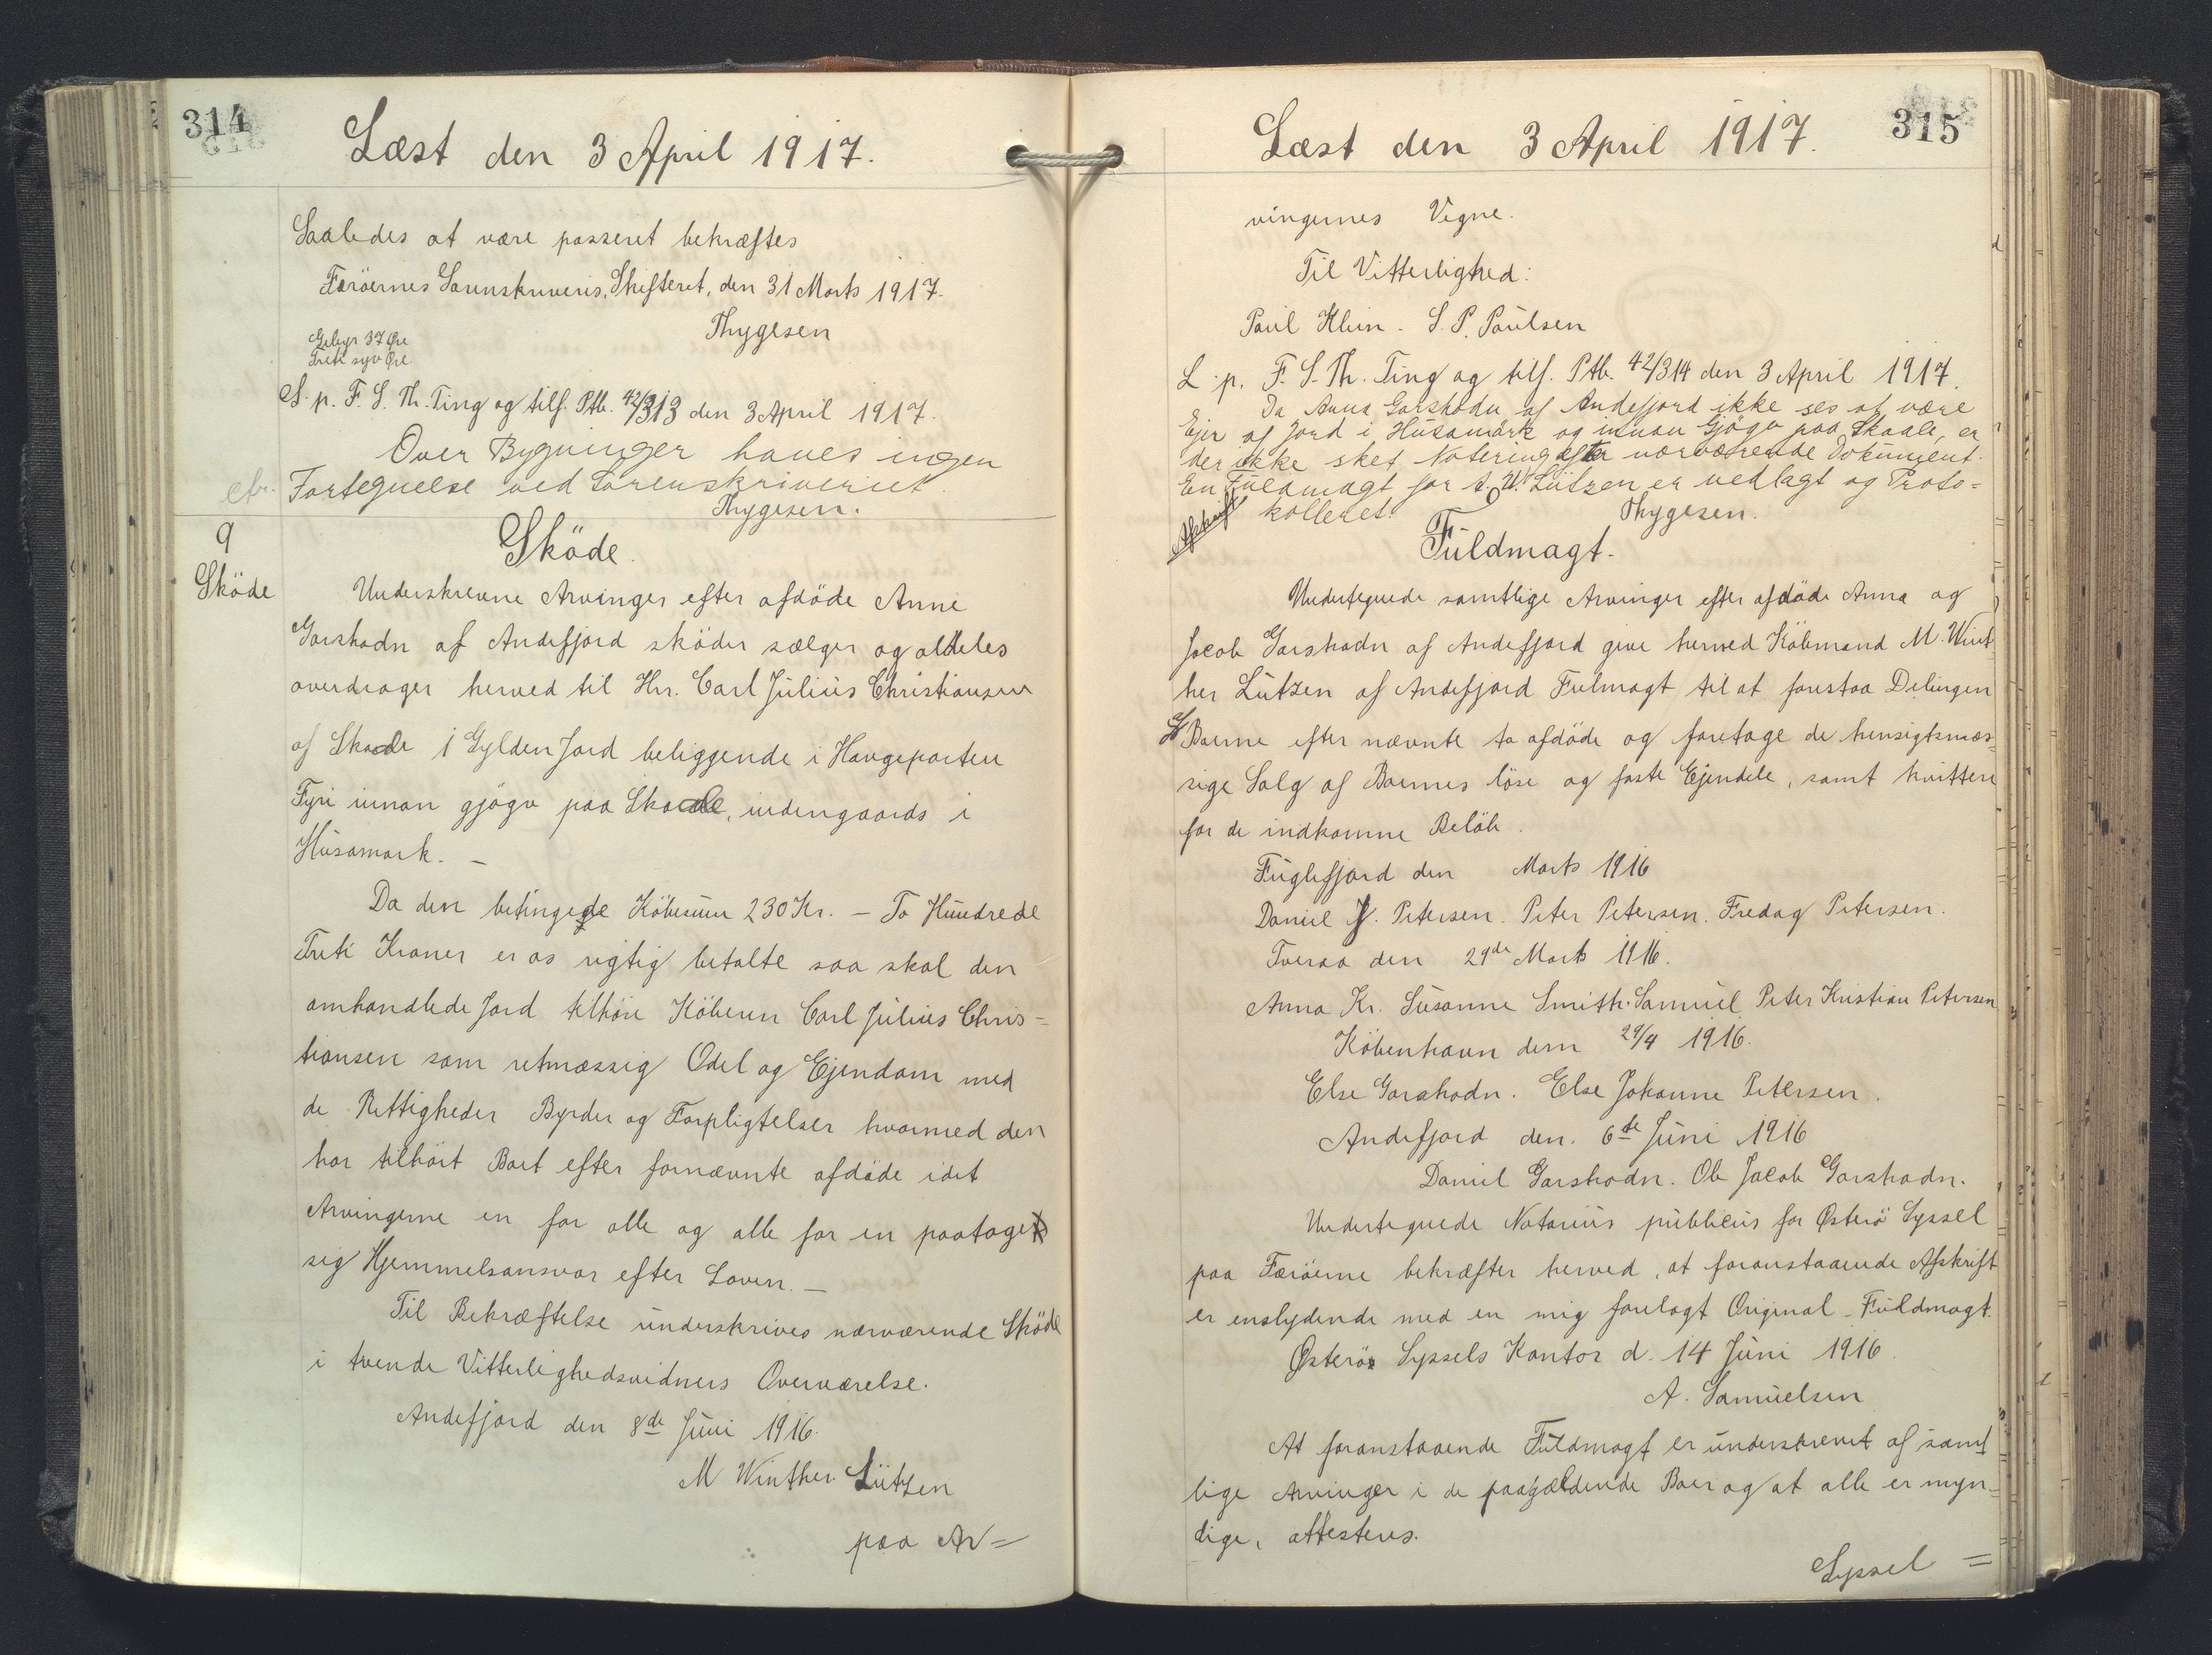 314
Læst den 3 April 1917.
Saaledes at være passeret bekræftes
Færöernes Sorenskriveris, Skifteret, den 31 Marts 1917.
Thygesen
Gebyr 37 Øre
Treti syv Øre
L. p. F. S. Th. Ting og tilf. Ptb. 42/313 den 3 April 1917.
Over Bygninger haves ingen
Fortegnelse ved Sorenskriveriet.
Thygesen.
9
Sköde
Sköde.
Underskrevne Arvinger efter afdöde Anne
Garshodn af Andefjord sköder sælger og aldeles
overdrager herved til Hr. Carl Julius Christiansen
af Skaale 1 Gylden Jord beliggende i Haugeparten
Fyri innan gjögv paa Skaale, indengaards i
Húsamark. –
Da den betingede Köbesum 230 Kr. – To Hundrede
Treti Kroner er os rigtig betalte saa skal den
omhandlede Jord tilhöre Köberen Carl Julius Chris=
tiansen som retmæssig Odel og Ejendom med
de Rettigheder Byrder og Forpligtelser hvormed den
har tilhört Boet efter fornævnte afdöde idet
Arvingerne en for alle og alle for en paatager
sig Hjemmelsansvar efter Loven. –
Til Bekræftelse underskrives nærværende Sköde
i tvende Vitterlighedsvidners Overværelse.
Andefjord den 8de Juni 1916.
M Winther Lützen
paa Ar=
315
Læst den 3 April 1917.
vingernes Vegne.
Til Vitterlighed:
Poul Klein - S. P. Poulsen
L. p. F. S. Th. Ting og tilf. Ptb. 42/314 den 3 April 1917.
Da Anna Garshodn af Andefjord ikke ses at være
Ejer af Jord i Húsamark og innan Gjögv paa Skaale, er
der ikke sket Notering efter nærværende Dokument.
En Fuldmagt for M. W. Lützen er vedlagt og Proto=
kolleret.
Thygesen.
Afskrift
Fuldmagt.
Undertegnede samtlige Arvinger efter afdöde Anna og
Jacob Garshodn af Andefjord give herved Köbmand M. Wint
her Lützen af Andefjord Fulmagt til at forestaa Delingen
af Boerne efter nævnte to afdöde og foretage de hensigtsmæs=
sige Salg af Boernes löse og faste Ejendele, samt kvittere
for de indkomne Belöb.
Fuglefjord den Marts 1916
Daniel J. Petersen. Peter Petersen. Fredag Petersen.
Tveraa den 29de Marts 1916.
Anna Kr. Susanne Smith. Samuel Peter Kristian Petersen
Köbenhavn dem 29/4 1916.
Else Garshodn. Else Johanne Petersen.
Andefjord den. 6te Juni 1916
Daniel Garshodn. Ole Jacob Garshodn.
Undertegnede Notarius publicus for Österö Syssel
paa Færöerne bekræfter herved, at foranstaaende Afskrift
er enslydende med en mig forelagt Original-Fuldmagt.
Österös Syssels Kontor d. 14 Juni 1916.
A. Samuelsen
At foranstaaende Fuldmagt er underskrevet af samt
lige Arvinger i de paagældende Boer og at alle er myn=
dige, attesteres.
Syssel =